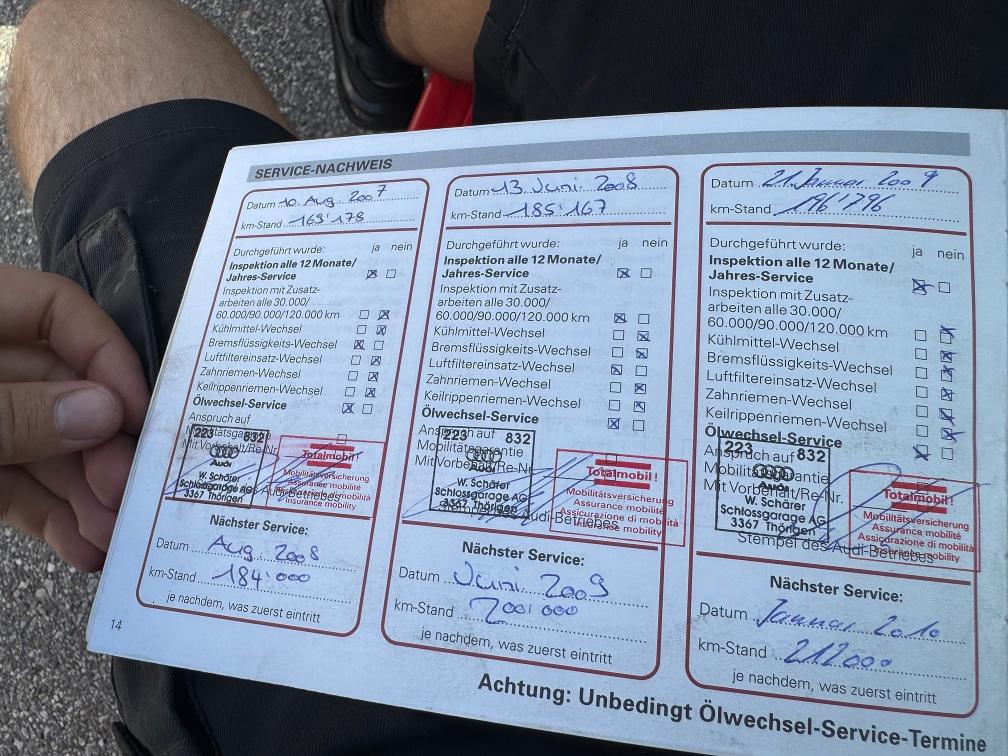 SERVICE-NACHWEIS
Datum 10. Aug. 2007
km-Stand 163'178
Durchgeführt wurde: ja nein
Inspektion alle 12 Monate/
Jahres-Service
Inspektion mit Zusatz-
arbeiten alle 30.000/
60.000/90.000/120.000 km
Kühlmittel-Wechsel
Bremsflüssigkeits-Wechsel
Luftfiltereinsatz-Wechsel
Zahnriemen-Wechsel
Keilrippenriemen-Wechsel
Ölwechsel-Service
Anspruch auf
Mobilitätsgarantie
Mit Vorbehalt/Re-Nr.
223 832
Audi
W. Schärer
Schlossgarage AG
3367 Thörigen
Totalmobil!
Mobilitätsversicherung
Assurance mobilité
Assicurazione di mobilità
Insurance mobility
Nächster Service:
Datum Aug. 2008
km-Stand 184'000
je nachdem, was zuerst eintritt
14
Datum 13. Juni 2008
km-Stand 185'167
Durchgeführt wurde: ja nein
Inspektion alle 12 Monate/
Jahres-Service
Inspektion mit Zusatz-
arbeiten alle 30.000/
60.000/90.000/120.000 km
Kühlmittel-Wechsel
Bremsflüssigkeits-Wechsel
Luftfiltereinsatz-Wechsel
Zahnriemen-Wechsel
Keilrippenriemen-Wechsel
Ölwechsel-Service
Anspruch auf
Mobilitätsgarantie
Mit Vorbehalt/Re-Nr.
223 832
Audi
W. Schärer
Schlossgarage AG
3367 Thörigen
Totalmobil!
Mobilitätsversicherung
Assurance mobilité
Assicurazione di mobilità
Insurance mobility
Stempel des Audi-Betriebes
Nächster Service:
Datum Juni 2009
km-Stand 200'000
je nachdem, was zuerst eintritt
Datum 21. Januar 2009
km-Stand 196'796
Durchgeführt wurde: ja nein
Inspektion alle 12 Monate/
Jahres-Service
Inspektion mit Zusatz-
arbeiten alle 30.000/
60.000/90.000/120.000 km
Kühlmittel-Wechsel
Bremsflüssigkeits-Wechsel
Luftfiltereinsatz-Wechsel
Zahnriemen-Wechsel
Keilrippenriemen-Wechsel
Ölwechsel-Service
Anspruch auf
Mobilitätsgarantie
Mit Vorbehalt/Re-Nr.
223 832
Audi
W. Schärer
Schlossgarage AG
3367 Thörigen
Totalmobil!
Mobilitätsversicherung
Assurance mobilité
Assicurazione di mobilità
Insurance mobility
Stempel des Audi-Betriebes
Nächster Service:
Datum Januar 2010
km-Stand 212000
je nachdem, was zuerst eintritt
Achtung: Unbedingt Ölwechsel-Service-Termine